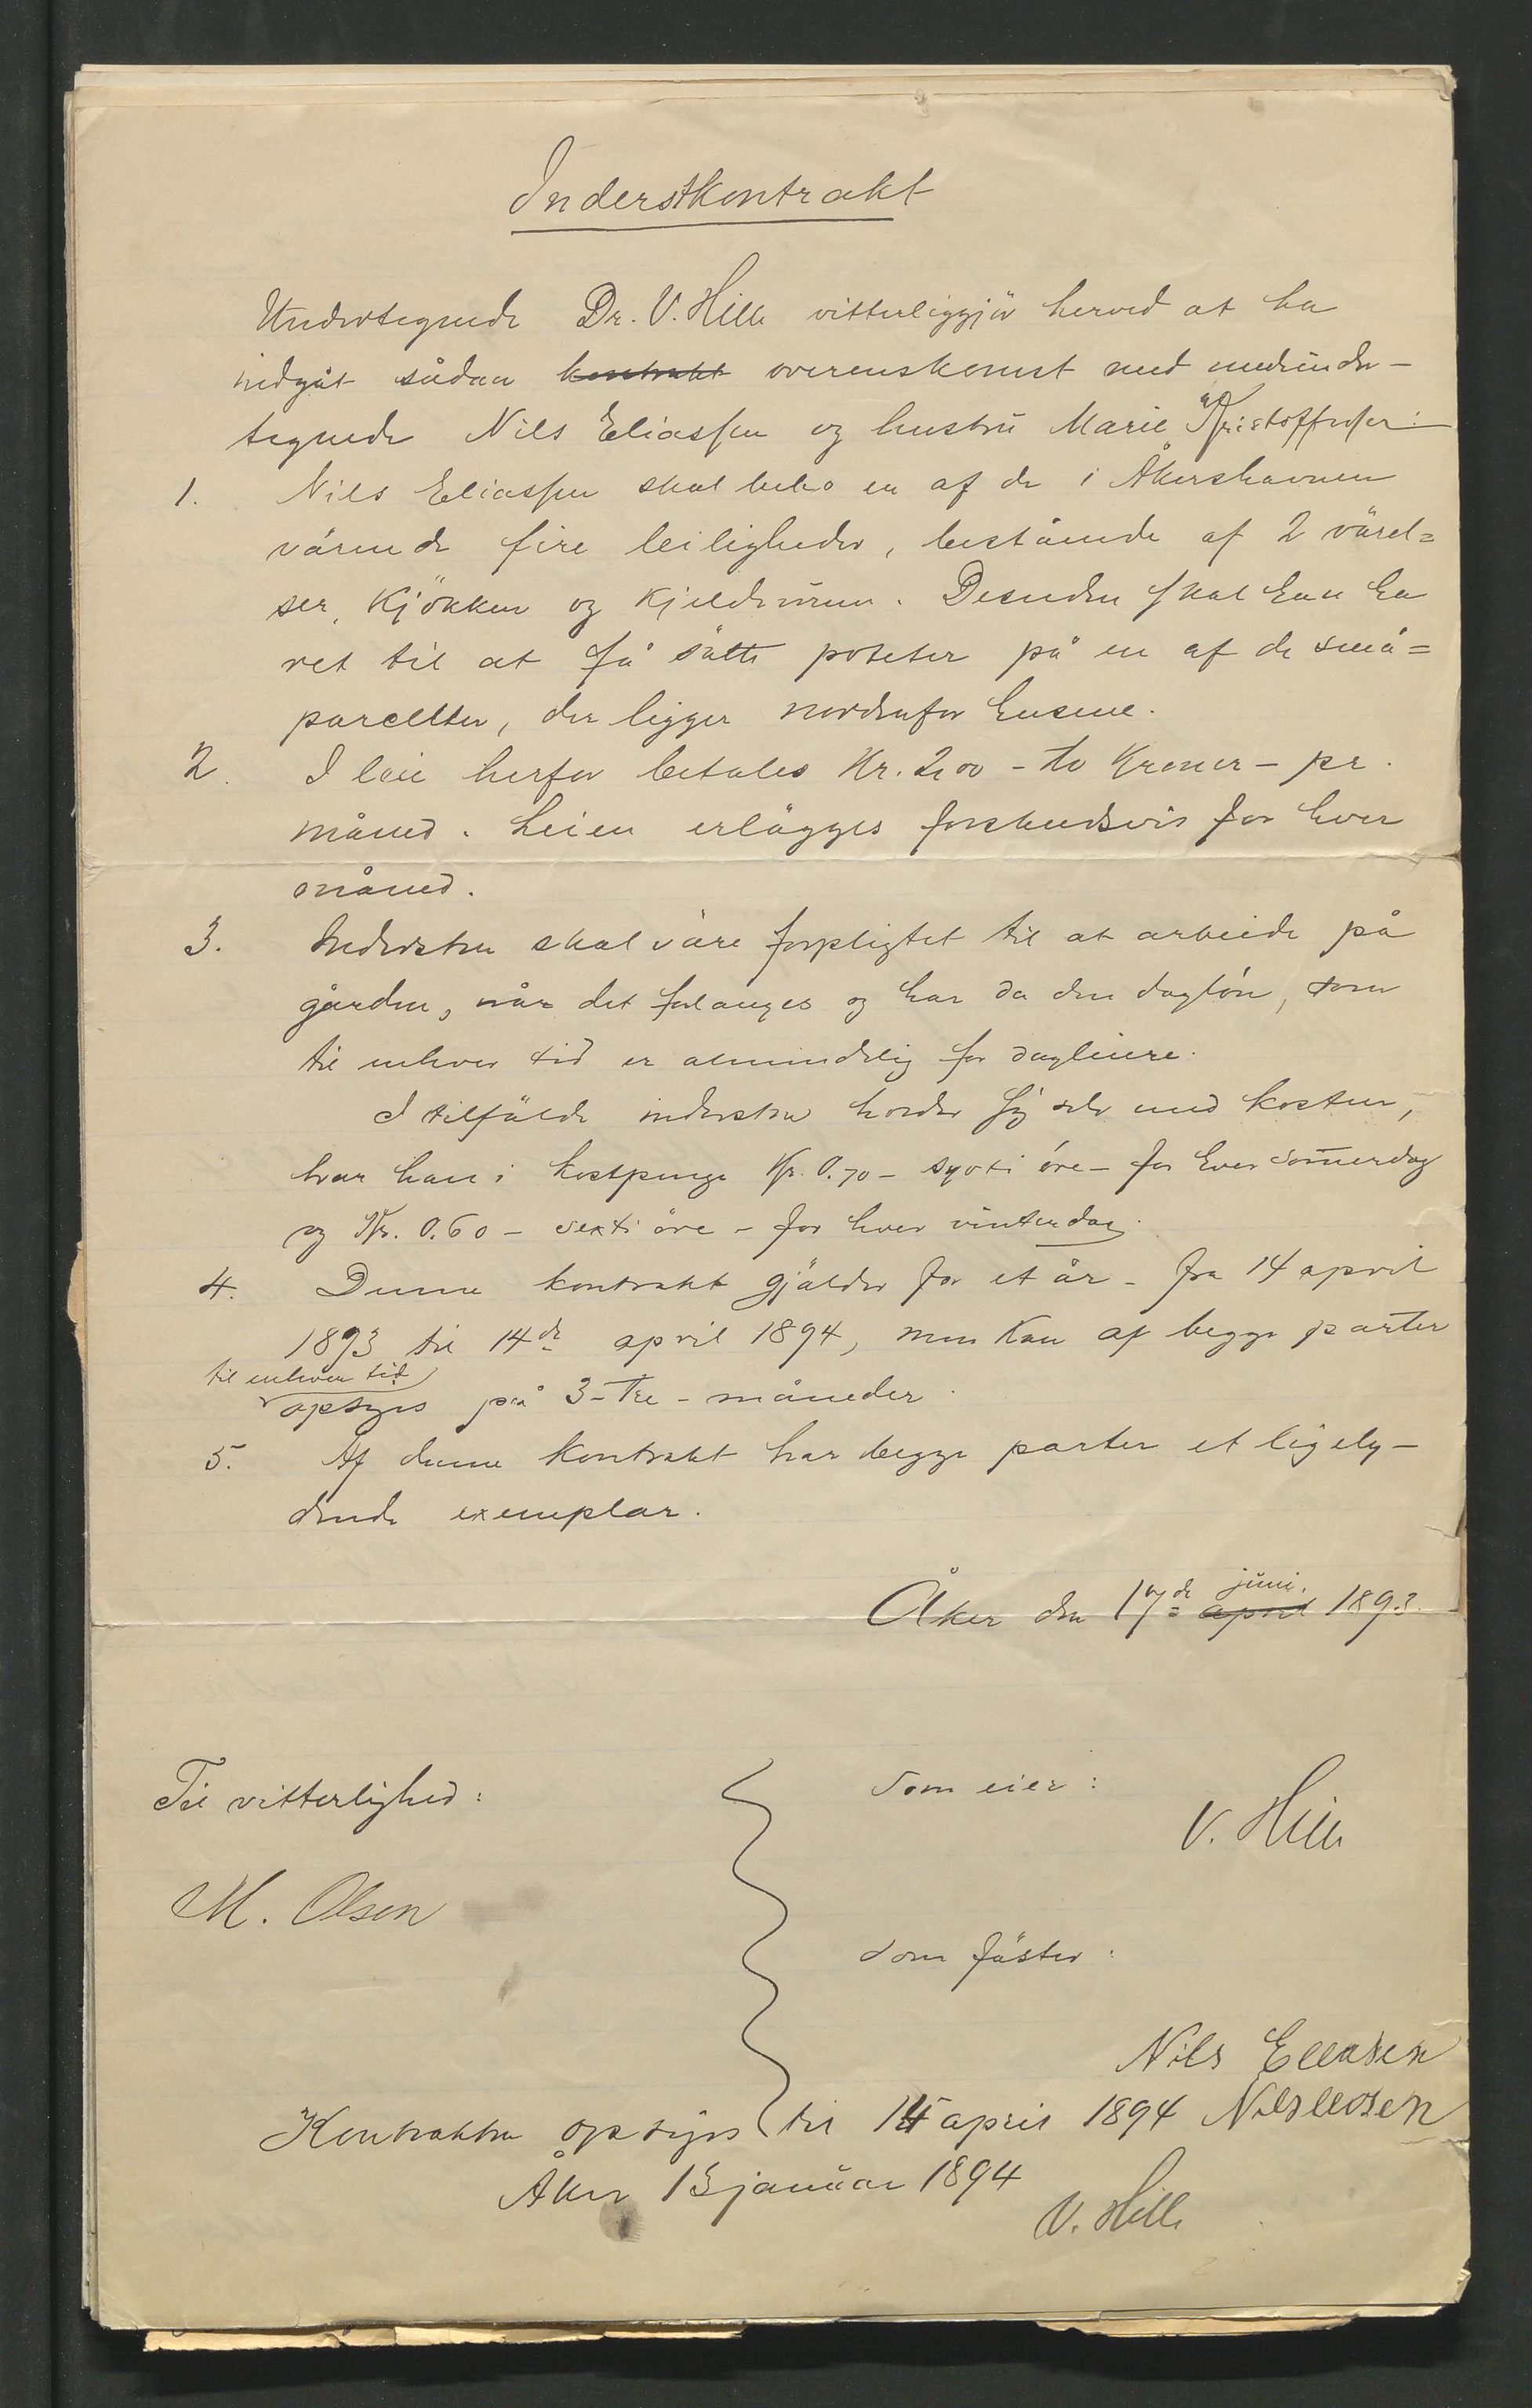 Inderstkontrakt
Undertegnede Dr. V. Hille vitterliggjör herved at ha
indgåt sådan kontrakt overenskomst med medunder-
tegnede Nils Eliassen og hustru Marie Kristoffersen:
1. Nils Eliassen skal bebo en af de i Åkershavnen
värende fire leiligheder, bestående af 2 värel=
ser, kjökken og kjelderrum. Desuden skal han ha
ret til at få sätte poteter på en af de små=
parcelter, der ligger nordenfor husene.
2. I leie herfor betales Kr. 2,00 - to kroner - pr.
måned. Leien erlägges forskudsvis for hver
måned.
3.Indersten skal väre forpligtet til at arbeide på
gården, når det forlanges og har da den daglön, som
til enhver tid er almindelig for dagleiere.
I tilfälde indersten holder sig selv med kosten,
har han i kostpenge Kr. 0.70 - sytti öre - for hver sommerdag
og Kr. 0.60 - sexti öre - for hver vinterdag.
4. Denne kontrakt gjälder for et år - fra 14 april
1893 til 14de april 1894, men kan af begge parter
til enhver tid
opsiges på 3 - tre - måneder.
5. Af denne kontrakt har begge parter et ligely-
dende exemplar.
Åker den 17de april juni. 1893.
Til vitterlighed:
M. Olsen
Som eier:
V. Hille
Som fäster:
Nils Eleasen
Kontrakten opsiges til 14 april 1894
Åker 13 januar 1894
V. Hille